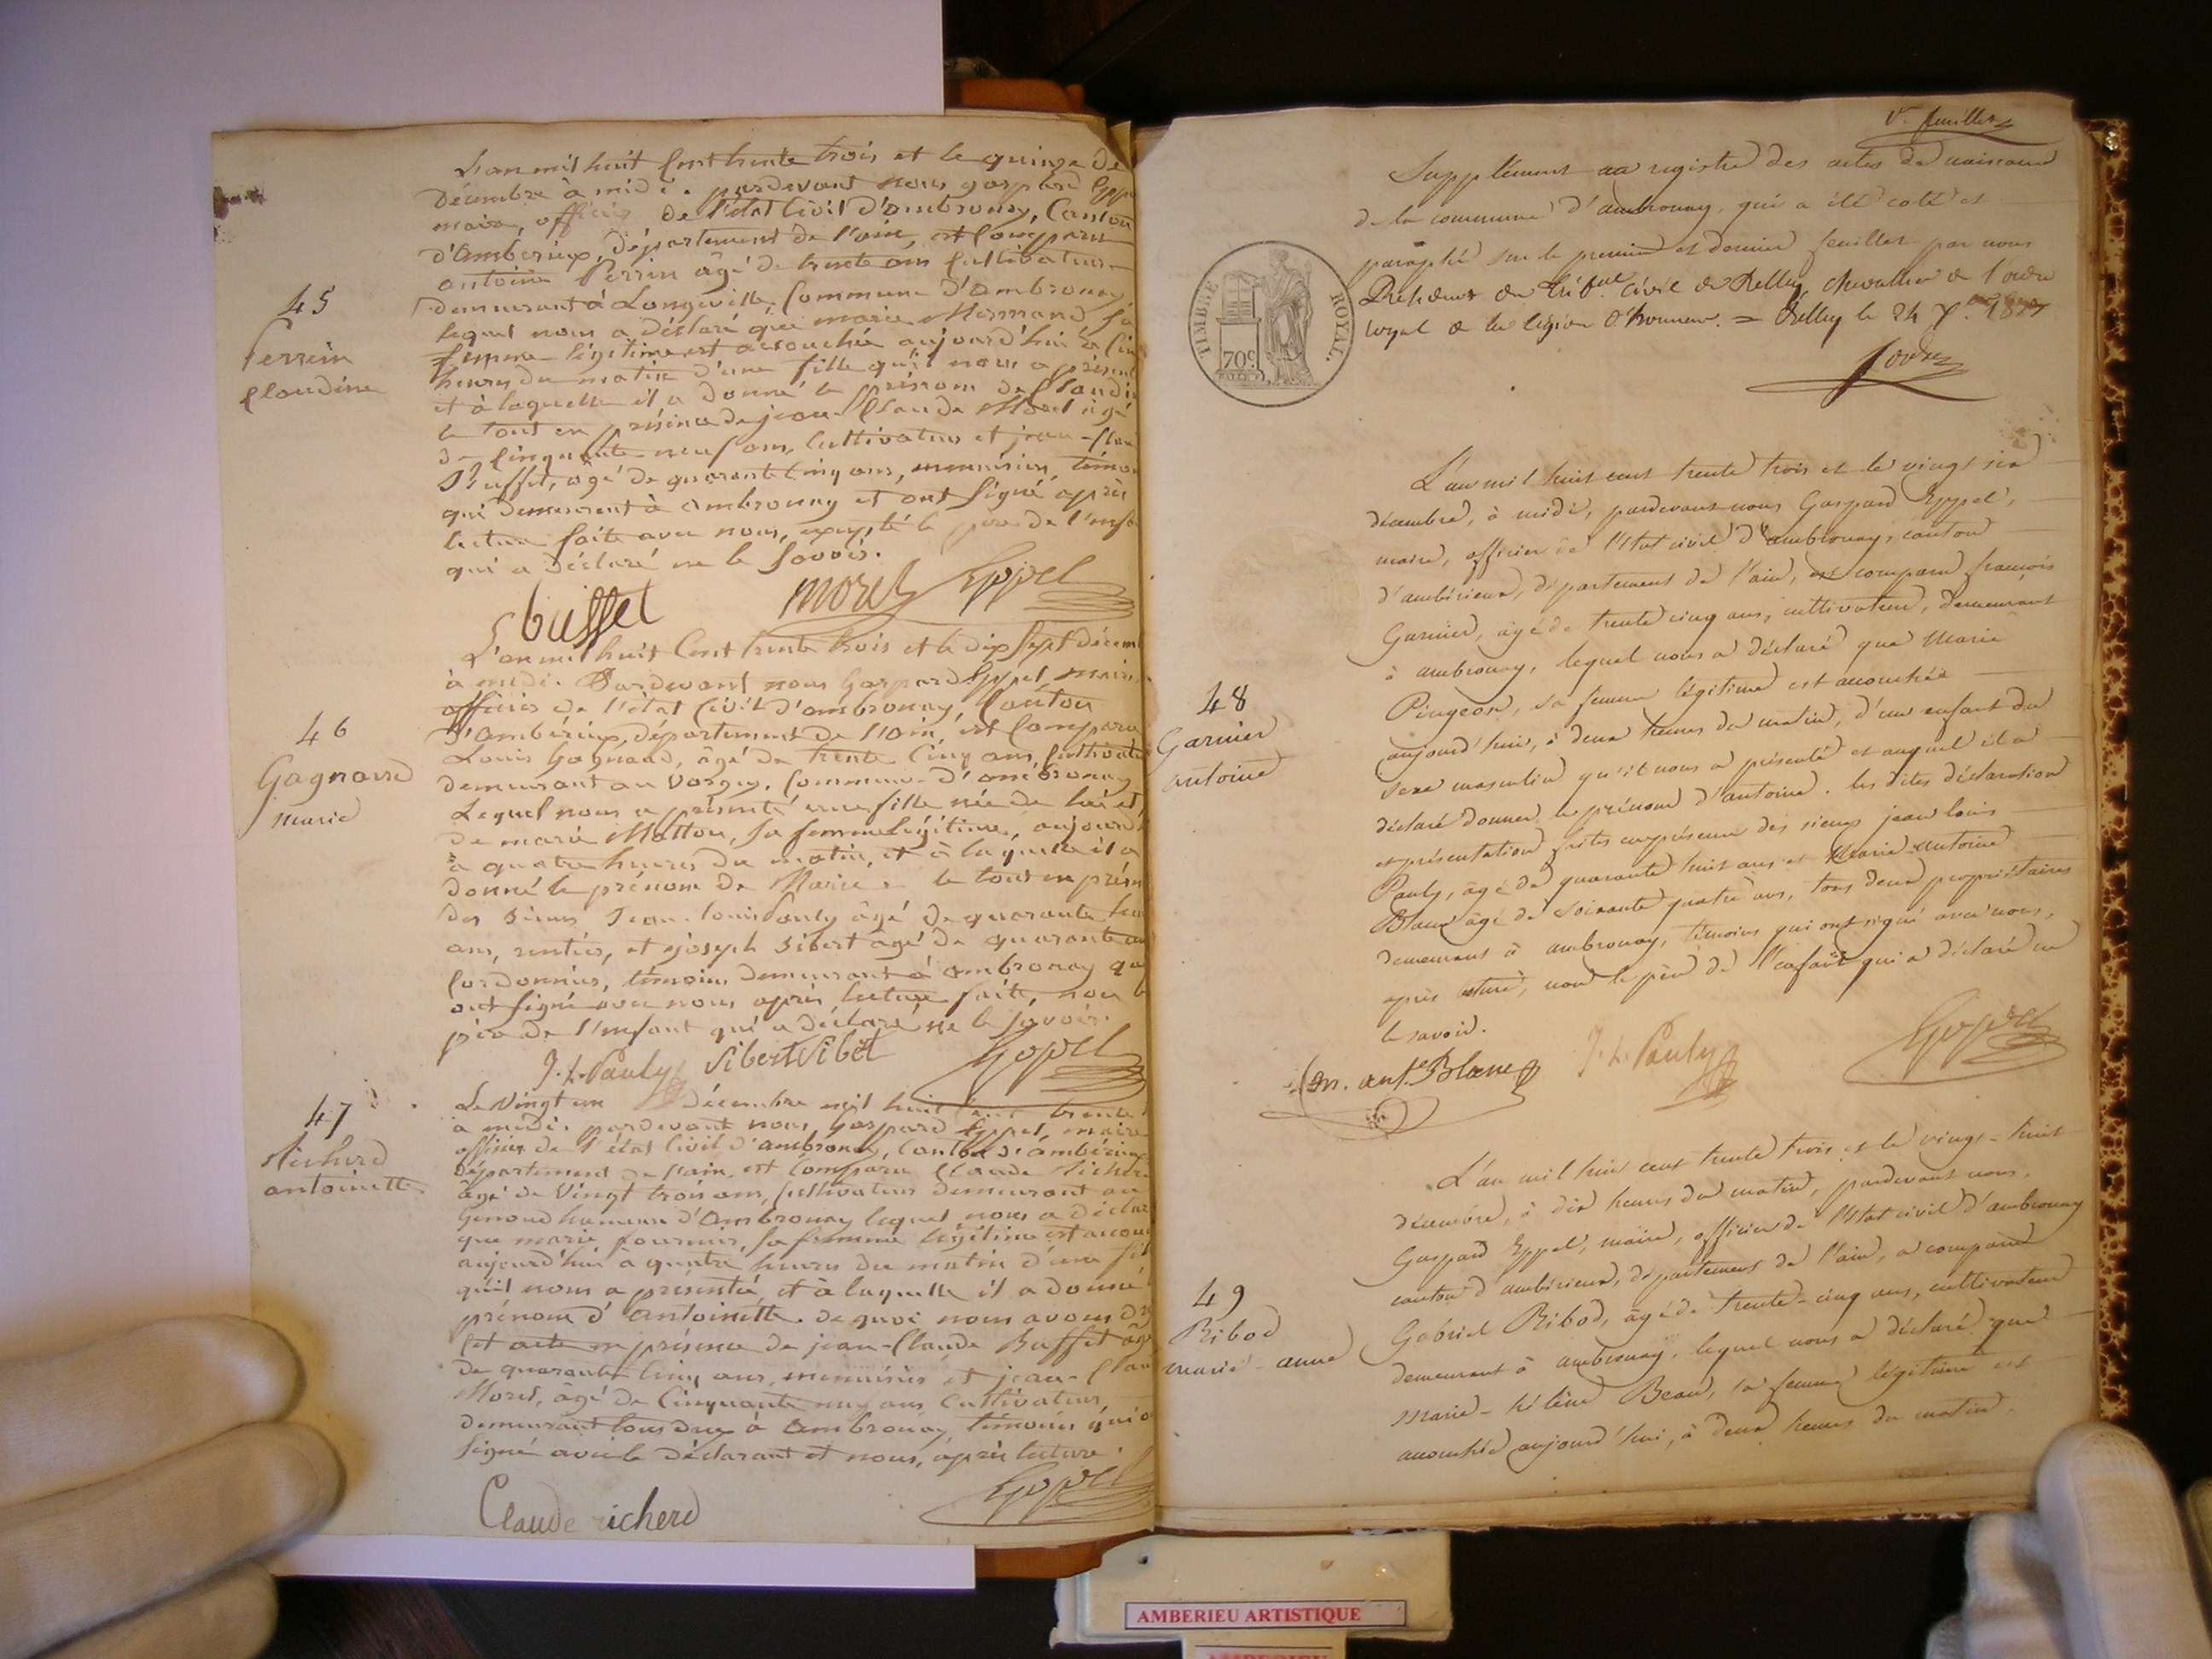 L'an mil huit Cent trente trois et le quinze de
Décembre à midi. pardevant nous gaspard Epp
maire, officier de l'état Civil d'ambronay, Canton
d'Ambérieux, département de l'ain, est Comparu
antoine Perrin âgé de trente ans Cultivateur
demeurant à Longeville, Commune d'ambronay,
lequel nous a déclaré que marie Mermand sa
femme légitime est accouchée aujourd'hui à Cin
heures du matin d'une fille qu'il nous a présent
et à laquelle il a donné le prénom de Claudi
le tout en présence de jean Claude Morel âgé
de Cinquante neuf ans, Cultivateur et jean-Clau
Buffet, âgé de quarante Cinq ans, menuisier, témoi
qui demeurent à ambronay et ont Signé après
lecture faite avec nous, excepté le père de l'enfa
qui a déclaré ne le Savoir.
buffet morel Eppel
45
Perrin
Claudine
L'an mil huit Cent trente trois et le dix Sept décem
à midi. Pardevant nous Gaspard Eppel, maire,
officier de l'état Civil d'ambronay, Canton
d'Ambérieux, département de l'Ain, est Comparu
Louis Gagnard, âgé de trente Cinq ans, Cultivate
demeurant au Vorgey, Commune d'ambronay
Lequel nous a présenté une fille née de lui et
de marie Mollon, Sa femme légitime, aujourd
à quatre heures du matin, et à laquelle il a
donné le prénom de Marie. le tout en présen
des Sieurs Jean-louis Pauly âgé de quarante hu
ans, rentier, et joseph Sibert âgé de quarante
Cordonnier, témoins demeurant à ambronay qu
ont Signé avec nous après lecture faite, non le
père de l'enfant qui a déclaré ne le Savoir.
J. L. Pauly Sibert Sibet Eppel
46
Gagnard
marie
Le Vingt un Décembre mil huit Cent trente
à midi. pardevant nous Gaspard Eppel, maire
officier de l'état Civil d'ambronay, Canton d'ambérieux
département de l'ain, est Comparu Claude Richer
âgé de Vingt trois ans, Cultivateur demeurant au
Genoud hameau d'Ambronay lequel nous a déclar
que marie fournier, Sa femme légitime est accou
aujourd'hui à quatre heures du matin d'une fil
qu'il nous a présentée, et à laquelle il a donné
prénom d'antoinette. de quoi nous avons dr
Cet acte en présence de jean-Claude Buffet âgé
de quarante Cinq ans, menuisier et jean-Clau
Morel, âgé de Cinquante neuf ans Cultivateur
demeurant tous deux à Ambronay, témoins qui o
Signé avec le déclarant et nous, après lecture.
Claude richerd Eppel
47
Richerd
antoinette
1er feuillet
Supplément au registre des actes de naissance
de la commune d'ambronay, qui a été coté et
paraphé sur le premier et dernier feuillet par nous
Président du tribal civil de Belley, chevalier de l'ordre
royal de la légion d'honneur. = Belley le 24
TIMBRE ROYAL.
70c
L'an mil huit cent trente trois et le vingt six
décembre, à midi, pardevant nous Gaspard Eppel,
maire, officier de l'état civil d'ambronay, canton
d'ambérieux, département de l'ain, est comparu françois
Garnier, âgé de trente cinq ans, cultivateur, demeurant
à ambronay, lequel nous a déclaré que Marie
Pingeon, sa femme légitime est accouchée
aujourd'hui, à deux heures du matin, d'un enfant du
sexe masculin qu'il nous a présenté et auquel il a
déclaré donner le prénom d'antoine. les dites déclaration
et présentation faites en présence des sieurs jean louis
Pauly, âgé de quarante huit ans et Marie-antoine
Blanc âgé de soixante quatre ans, tous deux propriétaires
demeurant à ambronay, témoins qui ont signé avec nous,
après lecture, non le père de l'enfant qui a déclaré ne
le savoir.
m. ant. Blanc J. L. Pauly Eppel
48
Garnier
antoine
L'an mil huit cent trente trois et le vingt-huit
décembre, à dix heures du matin, pardevant nous,
Gaspard Eppel, maire, officier de l'état civil d'ambronay
canton d'ambérieux, département de l'ain, a comparu
Gabriel Ribod, âgé de trente-cinq ans, cultivateur
demeurant à ambronay, lequel nous a déclaré que
Marie-hélène Beau, sa femme légitime est
accouchée aujourd'hui, à deux heures du matin,
49
Ribod
marie-anne
AMBERIEU ARTISTIQUE